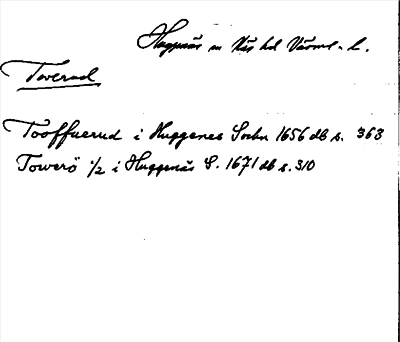 Huggenäs sn Näs hd Värml. l.
Toverud
Tooffuerud i Huggenes Sochn 1656 db s. 363
Towerö 1/2 i Huggenäs S. 1671 db s. 310